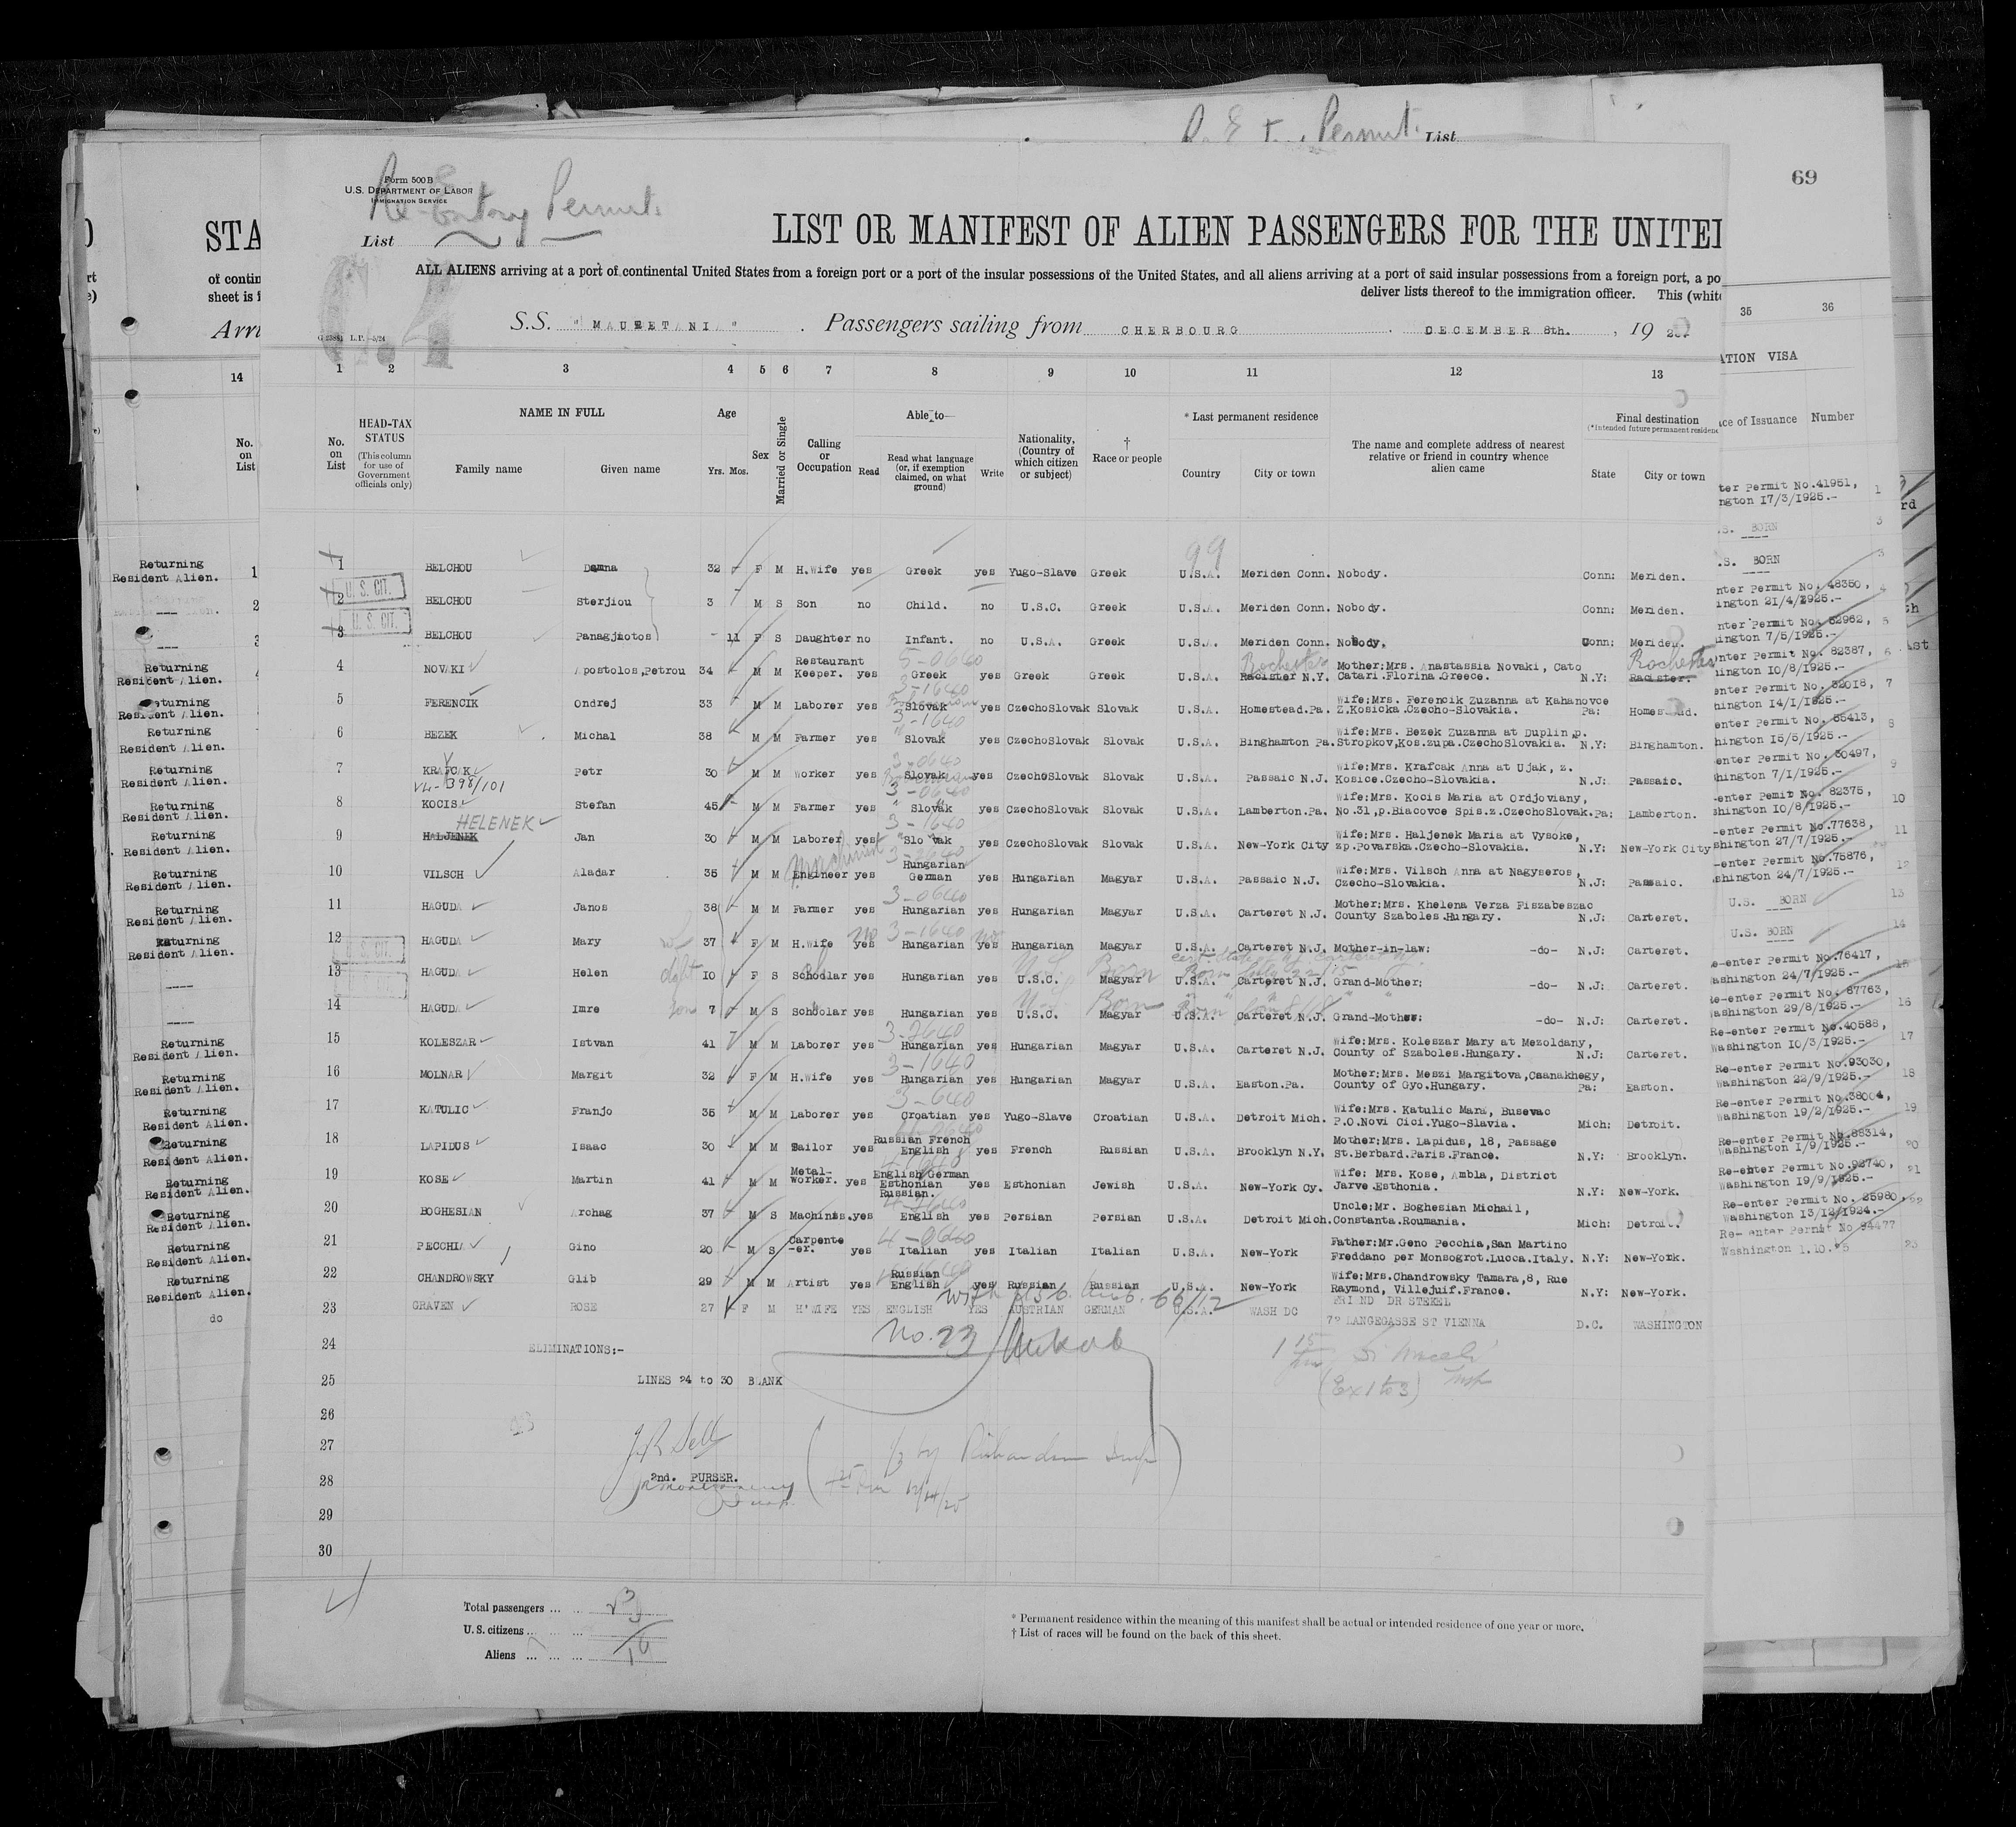 Re-Entry Permit. List
69
Form 500 B
U.S. DEPARTMENT OF LABOR
IMMIGRATION SERVICE
Re-Entry Permit.
List
LIST OR MANIFEST OF ALIEN PASSENGERS FOR THE UNITE
ALL ALIENS arriving at a port of continental United States from a foreign port or a port of the insular possessions of the United States, and all aliens arriving at a port of said insular possessions from a foreign port, a po
deliver lists thereof to the immigration officer. This (white
S.S. "MAURETANIA". Passengers sailing from CHERBOURG. DECEMBER 8th., 19
1 2 3 4 5 6 7 8 9 10 11 12 13
No. on List
HEAD-TAX STATUS (This column for use of Government officials only)
NAME IN FULL Family name Given name
Age Yrs. Mos.
Sex
Married or Single
Calling or Occupation
Able to— Read Read what language (or, if exemption claimed, on what ground) Write
Nationality, (Country of which citizen or subject)
† Race or people
* Last permanent residence Country City or town
The name and complete address of nearest relative or friend in country whence alien came
Final destination (*Intended future permanent residence State City or town
99
1 BELCHOU Damna 32 F M H.Wife yes Greek yes Yugo-Slave Greek U.S.A. Meriden Conn. Nobody. Conn: Meriden.
U. S. CIT.
2 BELCHOU Sterjiou 3 M S Son no Child. no U.S.C. Greek U.S.A. Meriden Conn. Nobody. Conn: Meriden.
U. S. CIT.
3 BELCHOU Panagjiotos - 11 F S Daughter no Infant. no U.S.A. Greek U.S.A. Meriden Conn. Nobody. Conn: Meriden.
5-0640 Rochester Rochester
4 NOVAKI Apostolos,Petrou 34 - M M Restaurant Keeper. yes Greek yes Greek Greek U.S.A. Racister N.Y. Mother:Mrs. Anastassia Novaki, Cato Catari.Florina.Greece. N.Y: Racister.
3-1640
5 FERENCIK Ondrej 33 M M Laborer yes Slovak yes CzechoSlovak Slovak U.S.A. Homestead.Pa. Wife:Mrs. Ferencik Zuzanna at Kahanovce Z.Kosicka.Czecho-Slovakia. Pa: Homestead.
3-1640
6 BEZEK Michal 38 M M Farmer yes Slovak yes CzechoSlovak Slovak U.S.A. Binghamton Pa. Wife:Mrs. Bezek Zuzanna at Duplin p. Stropkov,Kos.zupa.CzechoSlovakia. N.Y: Binghamton.
3-0640
7 KRAFCAK Petr 30 M M Worker yes Slovak yes CzechoSlovak Slovak U.S.A. Passaic N.J. Wife:Mrs. Krafcak Anna at Ujak, z. Kosice.Czecho-Slovakia. N.J: Passaic.
VL-398/101 3-0640
8 KOCIS Stefan 45 M M Farmer yes Slovak yes CzechoSlovak Slovak U.S.A. Lamberton.Pa. Wife:Mrs. Kocis Maria at Ordjoviany, No.31,p.Biacovce Spis.z.CzechoSlovak. Pa; Lamberton.
HELENEK 3-1640
9 HALJENEK Jan 30 M M Laborer yes Slovak yes CzechoSlovak Slovak U.S.A. New-York City Wife:Mrs. Haljenek Maria at Vysoke, zp.Povarska.Czecho-Slovakia. N.Y: New-York City
Machinist
10 VILSCH Aladar 35 M M Engineer yes Hungarian German yes Hungarian Magyar U.S.A. Passaic N.J. Wife:Mrs. Vilsch Anna at Nagyseros, Czecho-Slovakia. N.J: Passaic.
3-0640
11 HAGUDA Janos 38 M M Farmer yes Hungarian yes Hungarian Magyar U.S.A. Carteret N.J. Mother:Mrs. Khelena Verza Piszabeszac County Szaboles.Hungary. N.J: Carteret.
no 3-1640 no
12 HAGUDA Mary 37 F M H.Wife yes Hungarian yes Hungarian Magyar U.S.A. Carteret N.J. Mother-in-law: -do- N.J: Carteret.
U. S. CIT.
13 HAGUDA Helen 10 F S Schoolar yes Hungarian yes U.S.C. Magyar U.S.A. Carteret N.J. Grand-Mother: -do- N.J: Carteret.
U.S. Born
14 HAGUDA Imre son 7 M S Schoolar yes Hungarian yes U.S.C. Magyar U.S.A. Carteret N.J. Grand-Mother: -do- N.J: Carteret.
3-2640
15 KOLESZAR Istvan 41 M M Laborer yes Hungarian yes Hungarian Magyar U.S.A. Carteret N.J. Wife:Mrs. Koleszar Mary at Mezoldany, County of Szaboles.Hungary. N.J: Carteret.
3-1640
16 MOLNAR Margit 32 F M H.Wife yes Hungarian yes Hungarian Magyar U.S.A. Easton.Pa. Mother:Mrs. Meszi Margitova,Csanakhegy, County of Gyo.Hungary. Pa: Easton.
3-640
17 KATULIC Franjo 35 M M Laborer yes Croatian yes Yugo-Slave Croatian U.S.A. Detroit Mich. Wife:Mrs. Katulic Mara, Busevac P.O.Novi Cici.Yugo-Slavia. Mich: Detroit.
18 LAPIDUS Isaac 30 M M Tailor yes Russian French English yes French Russian U.S.A. Brooklyn N.Y. Mother:Mrs. Lapidus, 18, Passage St.Berbard.Paris.France. N.Y: Brooklyn.
19 KOSE Martin 41 M M Metal-Worker. yes English German Esthonian Russian. yes Esthonian Jewish U.S.A. New-York Cy. Wife: Mrs. Kose, Ambla, District Jarve.Esthonia. N.Y: New-York.
20 BOGHESIAN Archag 37 M S Machinis. yes English yes Persian Persian U.S.A. Detroit Mich. Uncle:Mr. Boghesian Michail, Constanta.Roumania. Mich: Detroit.
4-0640
21 PECCHIA Gino 20 M S Carpente-er. yes Italian yes Italian Italian U.S.A. New-York Father:Mr.Geno Pecchia,San Martino Freddano per Monsogrot.Lucca.Italy. N.Y: New-York.
22 CHANDROWSKY Glib 29 M M Artist yes Russian English yes Russian Russian U.S.A. New-York Wife:Mrs.Chandrowsky Tamara,8, Rue Raymond, Villejuif.France. N.Y: New-York.
23 GRAVEN ROSE 27 F M H'WIFE YES ENGLISH YES AUSTRIAN GERMAN U.S.A. WASH DC FRIEND DR STEKEL 7? LANGEGASSE ST VIENNA D.C. WASHINGTON
No. 23
24 ELIMINATIONS:-
25 LINES 24 to 30 BLANK
(Ex 1 to 3) Insp
26
27
28 2nd. PURSER.
12/14/25
29
30
Total passengers ... ... 23
U. S. citizens ... ... ...
Aliens ... ... ...
* Permanent residence within the meaning of this manifest shall be actual or intended residence of one year or more.
† List of races will be found on the back of this sheet.
STA
of contin
sheet is f
Arri
14
No. on List
Returning Resident Alien. 1
2
3
Returning Resident Alien.
do
35 36
ATION VISA
ce of Issuance Number
ter Permit No.41951, ngton 17/3/1925.- 1
S. BORN
.S. BORN
nter Permit No. 48350, ington 21/4/1925.- 4
nter Permit No. 52962, ington 7/5/1925.- 5
enter Permit No. 82387, hington 10/8/1925.- 6
enter Permit No. 32018, hington 14/1/1925.- 7
enter Permit No. 55413, hington 15/5/1925.- 8
enter Permit No. 30497, hington 7/1/1925.- 9
-enter Permit No. 82375, shington 10/8/1925.- 10
-enter Permit No.77638, shington 27/7/1925.- 11
-enter Permit No.75876, shington 24/7/1925.- 12
U.S. BORN 13
U.S. BORN 14
e-enter Permit No.76417, ashington 24/7/1925.- 15
Re-enter Permit No. 87763, Washington 29/8/1925.- 16
Re-enter Permit No.40588, Washington 10/3/1925.- 17
Re-enter Permit No.93030, Washington 22/9/1925.- 18
Re-enter Permit No.38004, Washington 19/2/1925.- 19
Re-enter Permit No.88314, Washington 1/9/1925.- 20
Re-enter Permit No.92740, Washington 19/9/1925.- 21
Re-enter Permit No. 25980, Washington 13/12/1924.-
Re-enter Permit No 94477 Washington 1.10.25 23